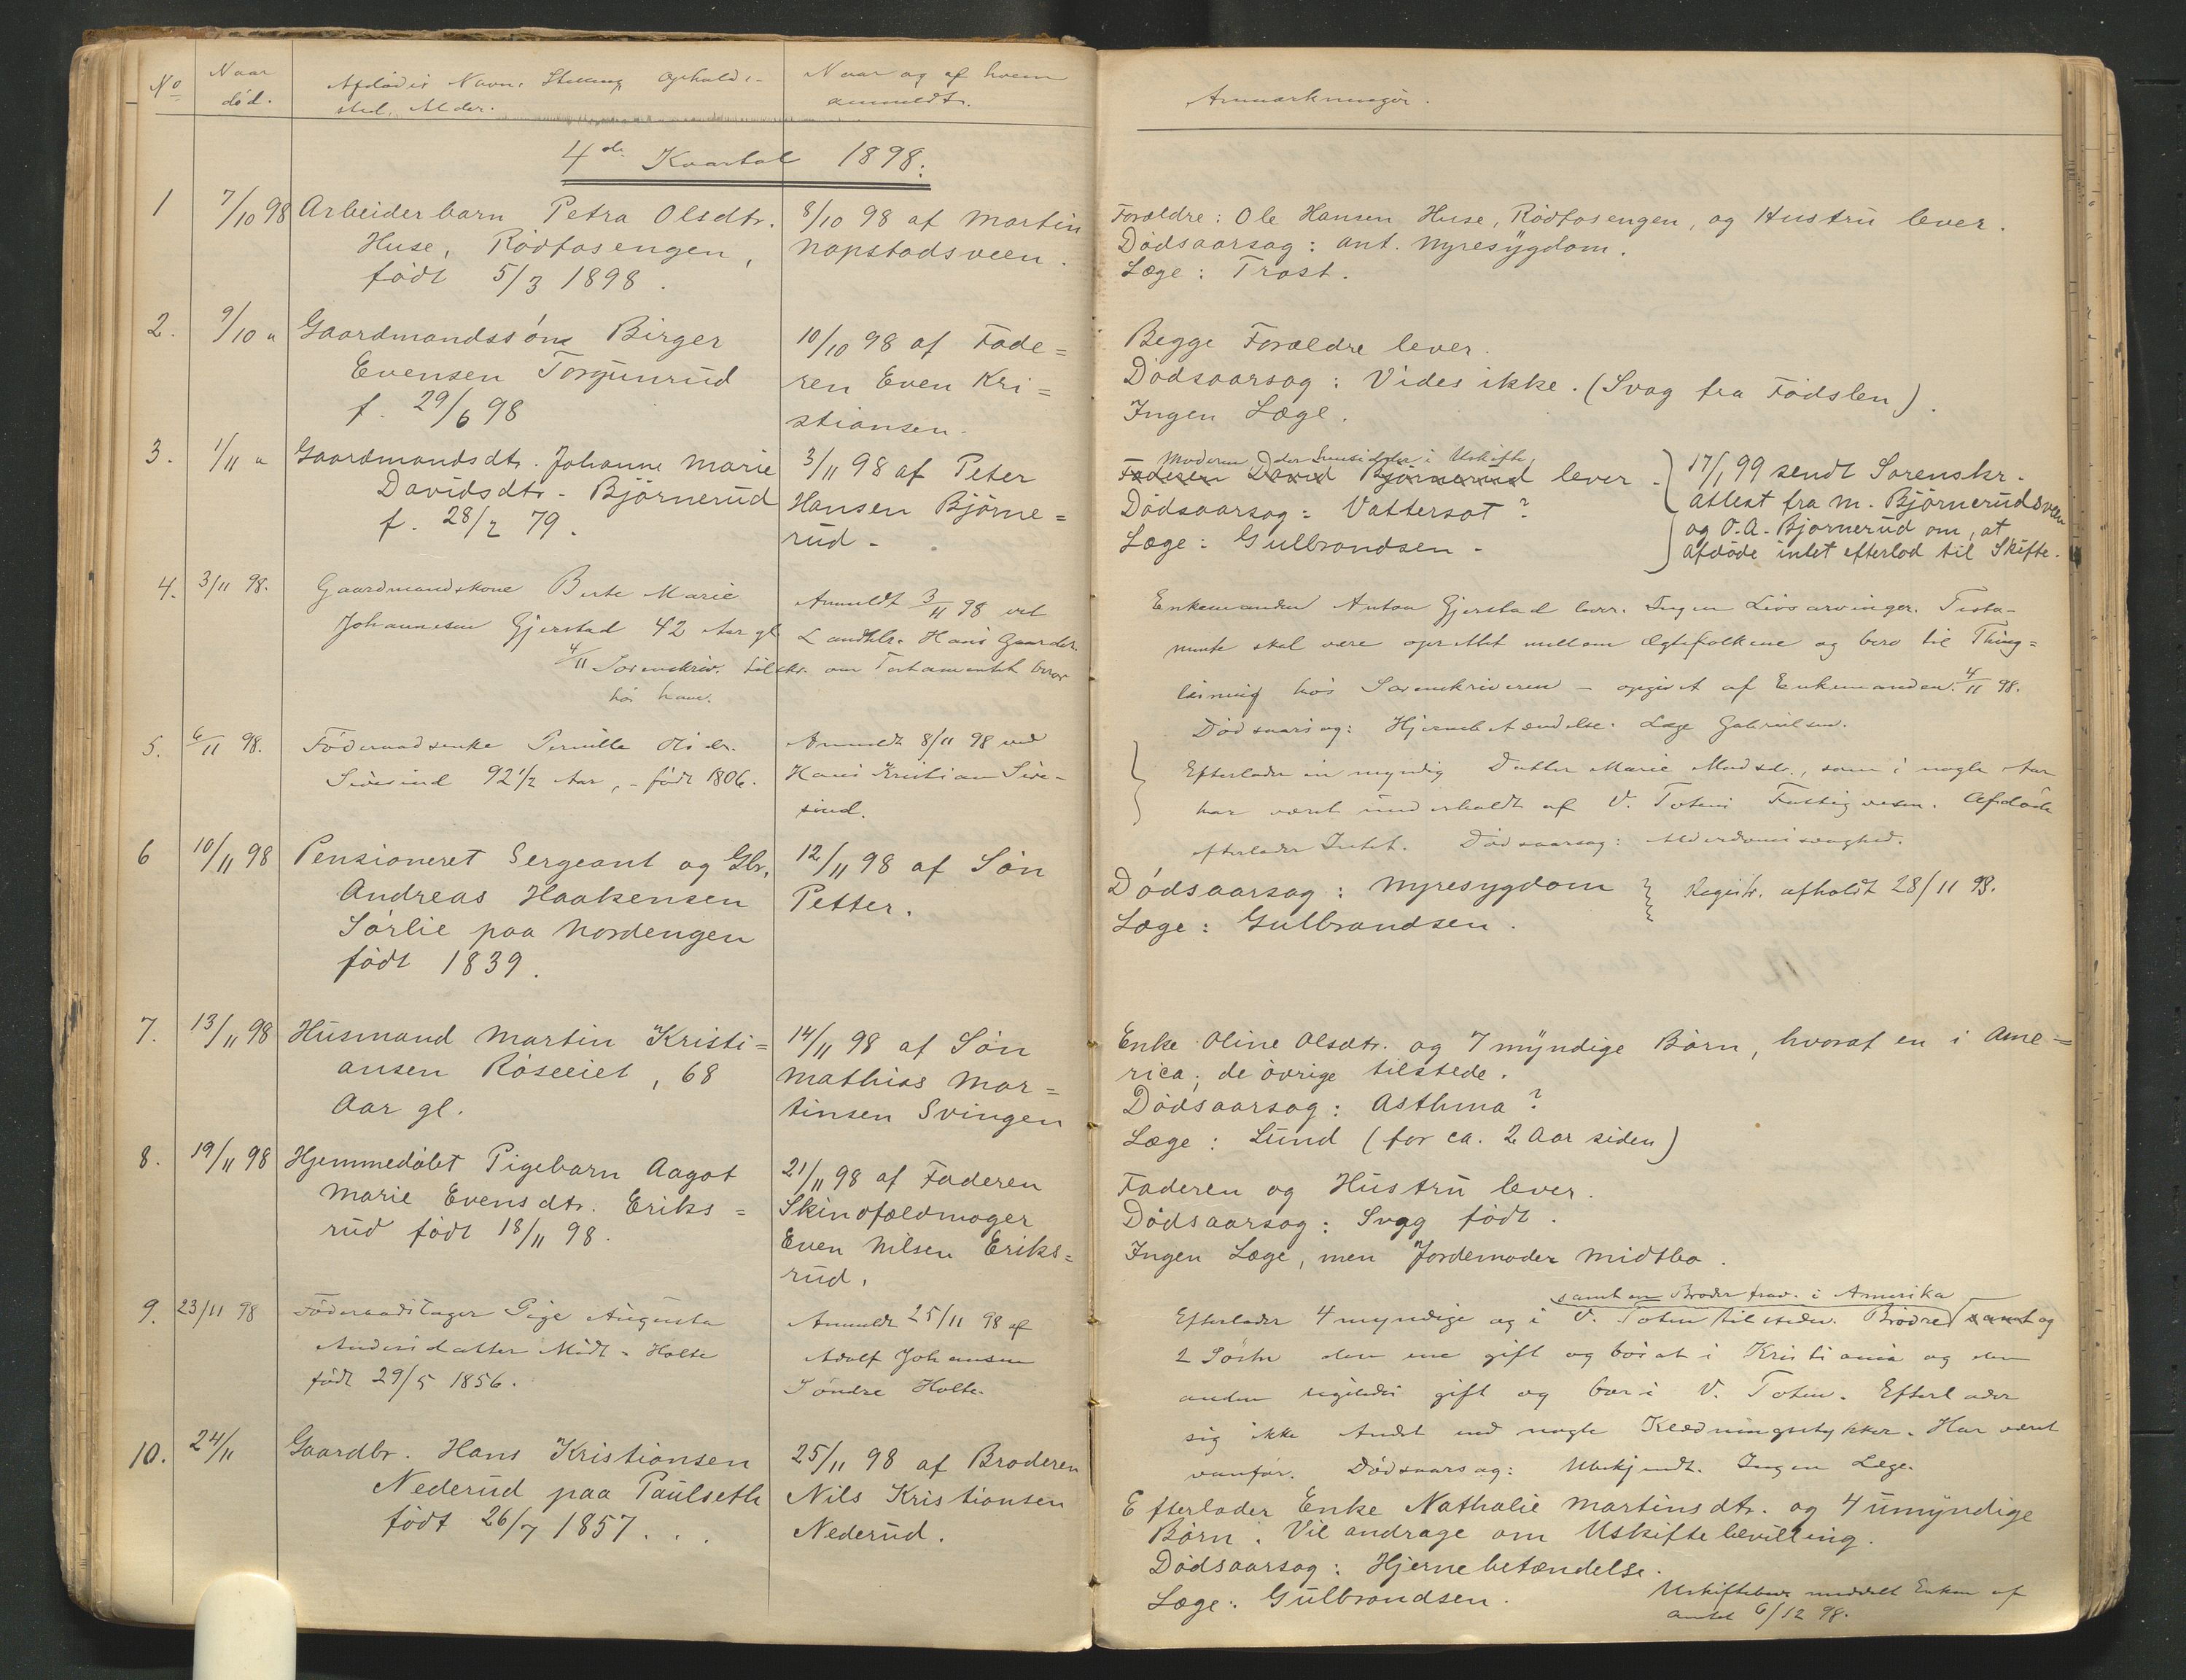 No
Naar
död.
Afdødes Navn, Stilling Opholds-
sted, Alder.
Naar og af hvem
anmeldt.
Anmærkninger.
4de Kvartal 1898.
1
7/10 98
Arbeiderbarn Petra Olsdtr.
Huse, Rödfosengen,
födt 5/3 1898.
8/10 98 af Martin
Napstadsveen.
Forældre: Ole Hansen Huse, Rödfosengen, og Hustru lever.
Dödsaarsag: ant. Nyresygdom.
Læge: Trast.
2.
9/10 "
Gaardmandssön Birger
Evensen Torgunrud
f. 29/6 98
10/10 98 af Fade=
ren Even Kri=
stiansen.
Begge Forældre lever.
Dödsaarsag: Vides ikke. (Svag fra Födslen).
Ingen Læge.
3.
1/11 "
Gaardmandsdtr. Johanne Marie
Davidsdtr. Björnerud
f. 28/2 79.
3/11 98 af Peter
Hansen Björne=
rud.
Moderen der sidder i Uskifte
Faderen David Björnerud lever.
Dödsaarsag: Vattersot?
Læge: Gulbrandsen.
17/1 99 sendt Sorenskr.
attest fra M. Björnerudsveen
og O.A. Björnerud om, at
afdöde intet efterlod til Skifte.
4.
3/11 98.
Gaardmandskone Berte Marie
Johannesen Gjerstad 42 Aar gl
4/11 Sorenskriv. tilskr. om Testamentet beror
hos ham.
Anmeldt 3/11 98 ved
Landhlr. Hans Gaarder.
Enkemanden Anton Gjerstad lever. Ingen Livsarvinger. Testa-
mente skal være oprettet mellem Ægtefolkene og bero til Thing=
læsning hos Sorenskriveren - opgivet af Enkemanden. 4/11 98.
Dödsaarsag: Hjernebetændelse. Læge Gabrielsen.
5.
6/11 98.
Föderaadsenke Pernille Olsdr.
Sivesind 92 1/2 Aar, - födt 1806.
Anmeldt 8/11 98 ved
Hans Kristian Sive-
sind.
Efterlader en myndig Datter Marie Madsdr., som i nogle Aar
har været underholdt af V. Totens Fattigvesen. Afdöde
efterlader Intet. Dödsaarsag: Alderdomssvaghed.
6
10/11 98
Pensioneret Sergeant og Gbr.
Andreas Haakensen
Sörlie paa Nordengen
födt 1839.
12/11 98 af Sön
Petter.
Dödsaarsag: Nyresygdom
Læge: Gulbrandsen.
Registr. afholdt 28/11 98.
7.
13/11 98
Husmand Martin Kristi=
ansen Röseeiet, 68
Aar gl.
14/11 98 af Sön
Mathias Mar=
tinsen Svingen
Enke Oline Olsdtr. og 7 myndige Börn, hvoraf en i Ame=
rica; de övrige tilstede.
Dödsaarsag: Asthma?
Læge: Lund (for ca. 2 Aar siden)
8.
19/11 98
Hjemmedöbt Pigebarn Aagot
Marie Evensdtr. Eriks=
rud födt 18/11 98.
21/11 98 af Faderen
Skindfældmager
Even Nilsen Eriks=
rud.
Faderen og Hustru lever.
Dödsaarsag: Svag födt.
Ingen Læge, men Jordemoder Midtbo.
9.
23/11 98
Föderaadstager Pige Augusta
Andersdatter Midt-Holte
födt 29/5 1856.
Anmeldt 25/11 98 af
Adolf Johansen
Söndre Holte.
samt en Broder frav. i Amerika
Efterlader 4 myndige og i V. Toten tilstedev. Brödre samt og
2 Söstre den ene gift og bosat i Kristiania og den
anden ligeledes gift og bor i V. Toten. Efterlader
sig ikke Andet end nogle Klædningsstykker. Har været
vanför. Dödsaarsag: Ubekjendt. Ingen Læge.
10.
24/11
Gaardbr. Hans Kristiansen
Nederud paa Paulseth
födt 26/7 1857.
25/11 98 af Broderen
Nils Kristiansen
Nederud.
Efterlader Enke Nathalie Martinsdtr. og 4 umyndige
Börn. Vil andrage om Uskiftebevilling.
Dödsaarsag: Hjernebetændelse.
Læge: Gulbrandsen.
Uskiftebev. meddelt Enken af
Amtet 6/12 98.